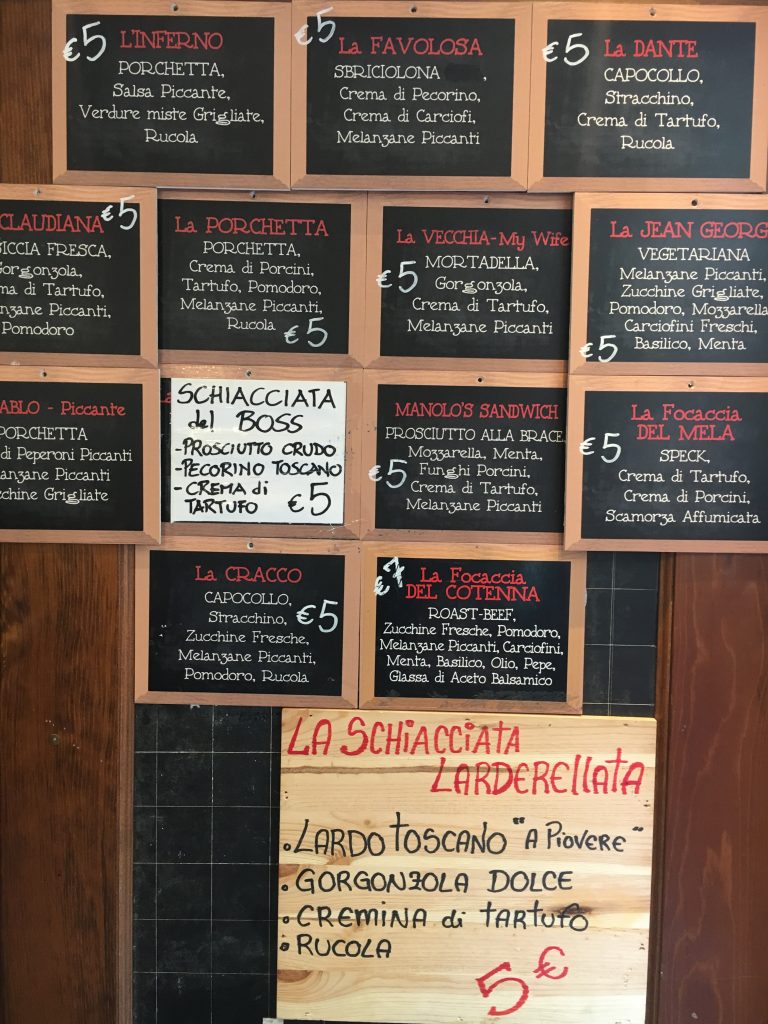 €5
L'INFERNO
PORCHETTA,
Salsa Piccante,
Verdure miste Grigliate,
Rucola
€5
La FAVOLOSA
SBRICIOLONA ,
Crema di Pecorino,
Crema di Carciofi,
Melanzane Piccanti
€5
La DANTE
CAPOCOLLO,
Stracchino,
Crema di Tartufo,
Rucola
CLAUDIANA €5
ICCIA FRESCA,
Gorgonzola,
ma di Tartufo,
nzane Piccanti,
Pomodoro
La PORCHETTA
PORCHETTA,
Crema di Porcini,
Tartufo, Pomodoro,
Melanzane Piccanti,
Rucola €5
La VECCHIA-My Wife
€5 MORTADELLA,
Gorgonzola,
Crema di Tartufo,
Melanzane Piccanti
La JEAN GEORG
VEGETARIANA
Melanzane Piccanti,
Zucchine Grigliate,
Pomodoro, Mozzarella
Carciofini Freschi,
€5 Basilico, Menta
ABLO - Piccante
PORCHETTA
di Peperoni Piccanti
anzane Piccanti
chine Grigliate
La
SCHIACCIATA
del BOSS
-PROSCIUTTO CRUDO
-PECORINO TOSCANO
-CREMA di
TARTUFO €5
MANOLO'S SANDWICH
PROSCIUTTO ALLA BRACE,
Mozzarella, Menta,
€5 Funghi Porcini,
Crema di Tartufo,
Melanzane Piccanti
La Focaccia
DEL MELA
€5 SPECK,
Crema di Tartufo,
Crema di Porcini,
Scamorza Affumicata
La CRACCO
CAPOCOLLO,
Stracchino, €5
Zucchine Fresche,
Melanzane Piccanti,
Pomodoro, Rucola
€7 La Focaccia
DEL COTENNA
ROAST-BEEF,
Zucchine Fresche, Pomodoro,
Melanzane Piccanti, Carciofini,
Menta, Basilico, Olio, Pepe,
Glassa di Aceto Balsamico
LA SCHIACCIATA
LARDERELLATA
•LARDO TOSCANO "A PIOVERE"
•GORGONZOLA DOLCE
•CREMINA di TARTUFO
•RUCOLA
5€